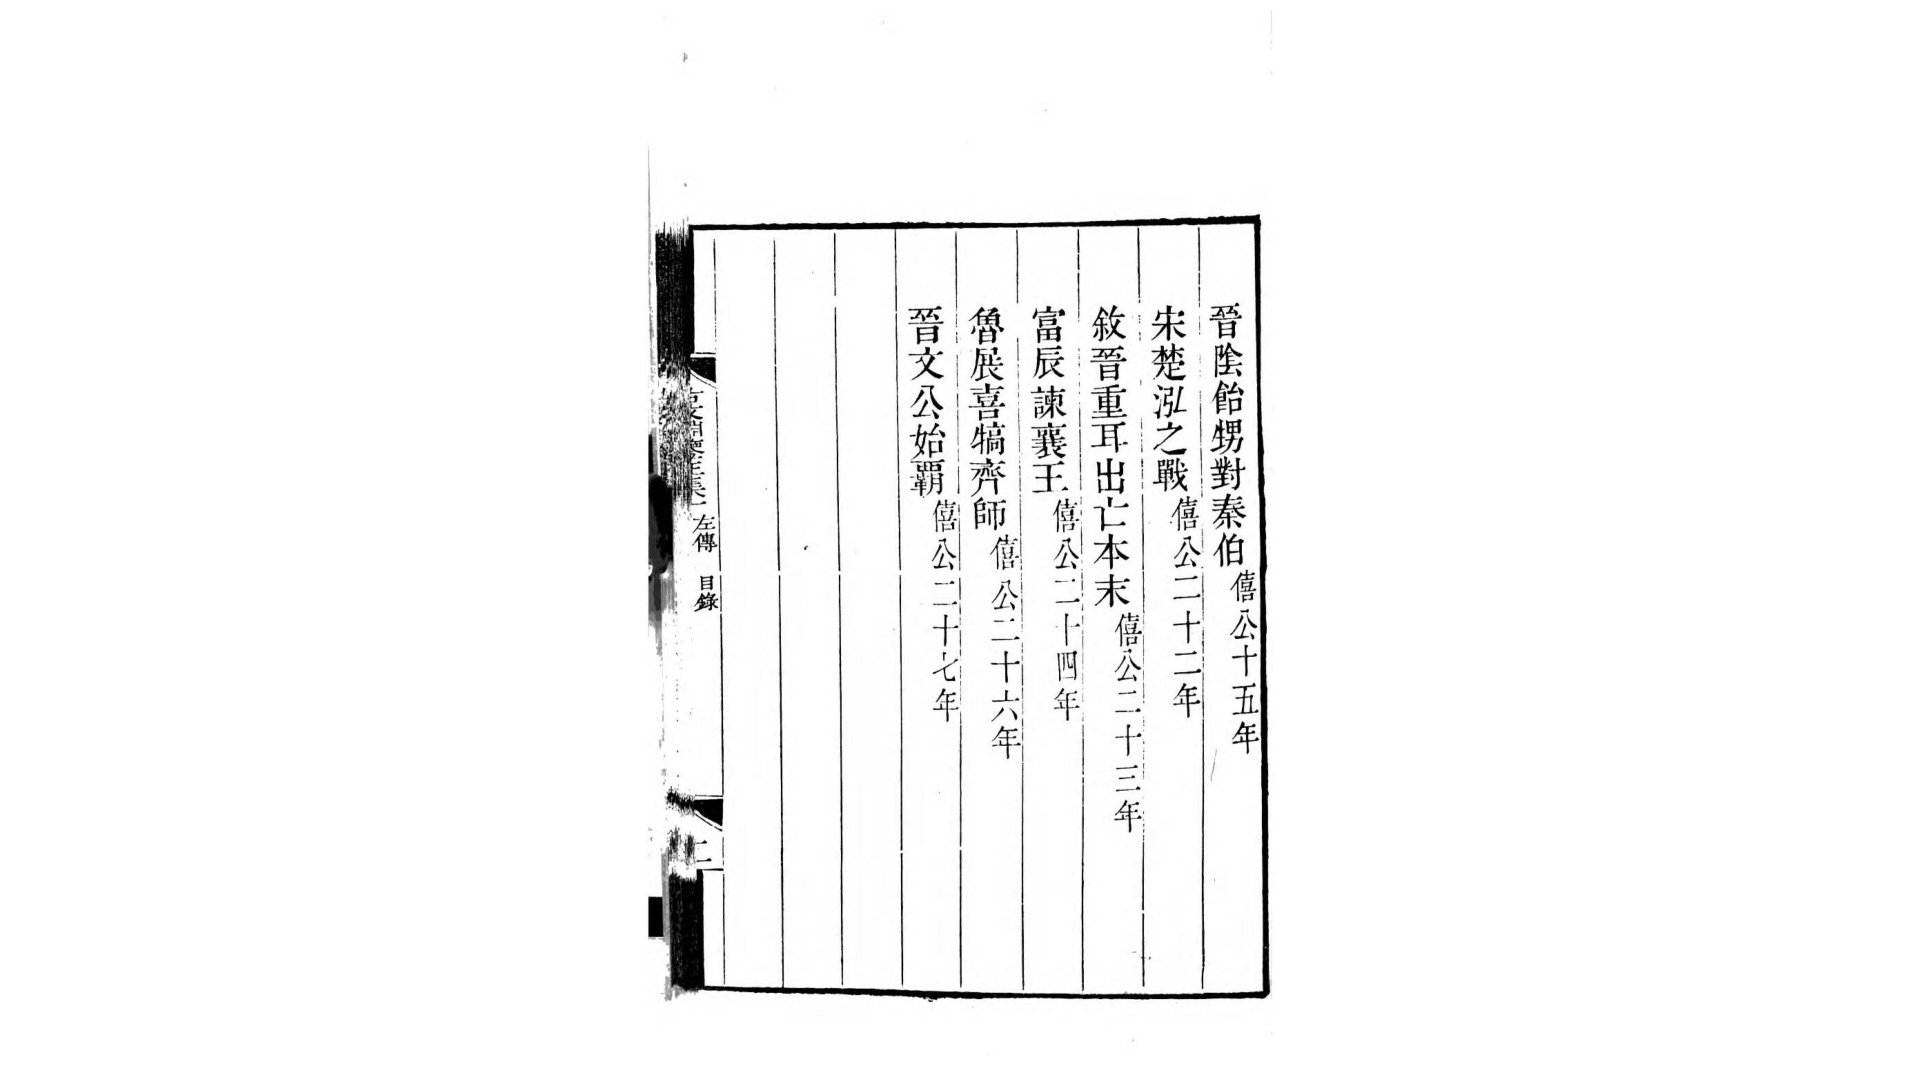 晉陰飴甥對秦伯僖公十五年
宋楚泓之戰僖公二十二年
敘晉重耳出亡本末僖公二十三年
富辰諫襄王僖公二十四年
魯展喜犒齊師僖公二十六年
晉文公始覇僖公二十七年
左傳 目錄
二